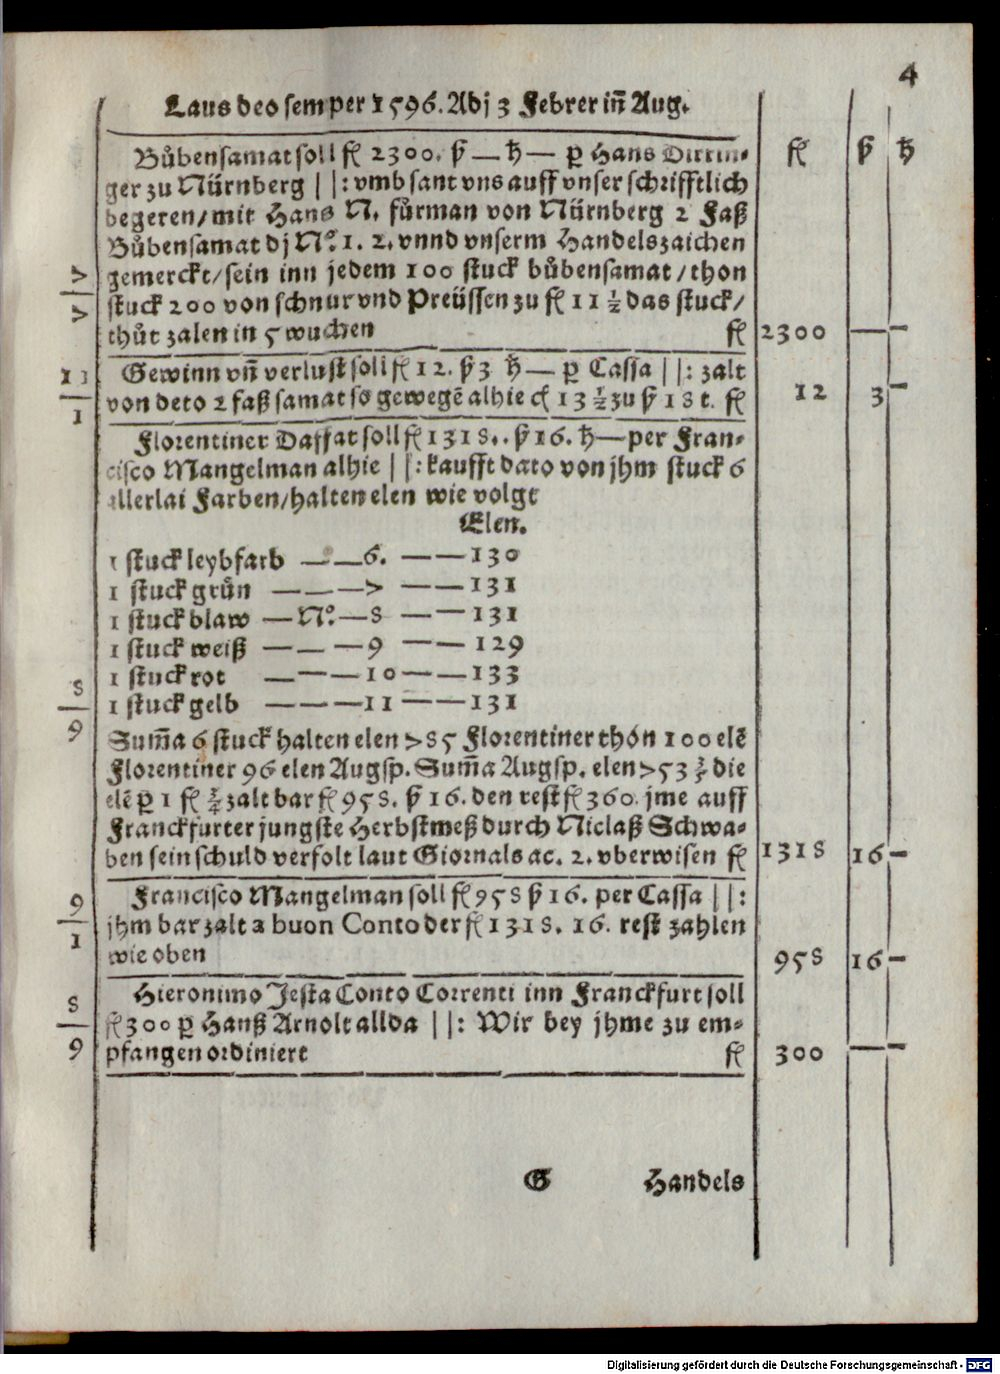 4
Laus deo semper 1596. Adj 3 Febrer iñ Aug.
fl ß ħ
Bůbensamat soll fl 2300. ß — ħ — ꝑ Hans Dirrin-
ger zu Nürnberg ||: vmb sant vns auff vnser schrifftlich
begeren/ mit Hans N. fůrman von Nürnberg 2 Faß
Bůbensamat dj Nº. 1. 2. vnnd vnserm Handelszaichen
gemerckt/ sein inn jedem 100 stuck bůbensamat/ thon
stuck 200 von schnur vnd Preüssen zu fl 11 ½ das stuck/
thůt zalen in 5 wuchen fl 2300 — —
Gewinn vñ verlust soll fl 12. ß 3 ħ — ꝑ Cassa ||: zalt
von deto 2 faß samat so gewegẽ alhie 13 ½ zu ß 18 t. fl 12 3 —
Florentiner Daffat soll fl 1318. ß 16. ħ — per Fran-
cisco Mangelman alhie ||: kaufft dato von jhm stuck 6
allerlai Farben/ halten elen wie volgt
Elen.
1 stuck leybfarb — — 6. — — 130
1 stuck grün — — — 7 — — 131
1 stuck blaw — Nº. — 8 — — 131
1 stuck weiß — — — 9 — — 129
1 stuck rot — — — 10 — — 133
1 stuck gelb — — — 11 — — 131
Sum̃a 6 stuck halten elen 785 Florentiner thón 100 elẽ
Florentiner 96 elen Augsp. Sum̃a Augsp. elen 753 die
elẽ ꝑ 1 fl ¾ zalt bar fl 958. ß 16. den rest fl 360. jme auff
Franckfurter jungste Herbstmeß durch Niclaß Schwa-
ben sein schuld verfolt laut Giornals ac. 2. vberwisen fl 1318 16 —
Francisco Mangelman soll fl 958 ß 16. per Cassa ||:
jhm bar zalt a buon Conto der fl 1318. 16. rest zahlen
wie oben 958 16 —
Hieronimo Jesta Conto Correnti inn Franckfurt soll
fl 300 ꝑ Hanß Arnolt allda ||: Wir bey jhme zu em-
pfangen ordiniert fl 300 — —
G Handels
13
1
8
9
9
1
8
9
Digitalisierung gefördert durch die Deutsche Forschungsgemeinschaft - DFG